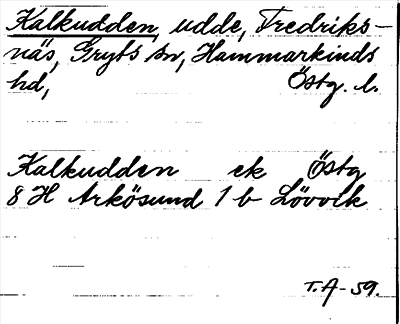 Kalkudden, udde, Fredriks-
näs, Gryts sn, Hammarkinds
hd, Östg. l.
Kalkudden ek Östg
8 H Arkösund 1 b Lövvik
T.A-59.